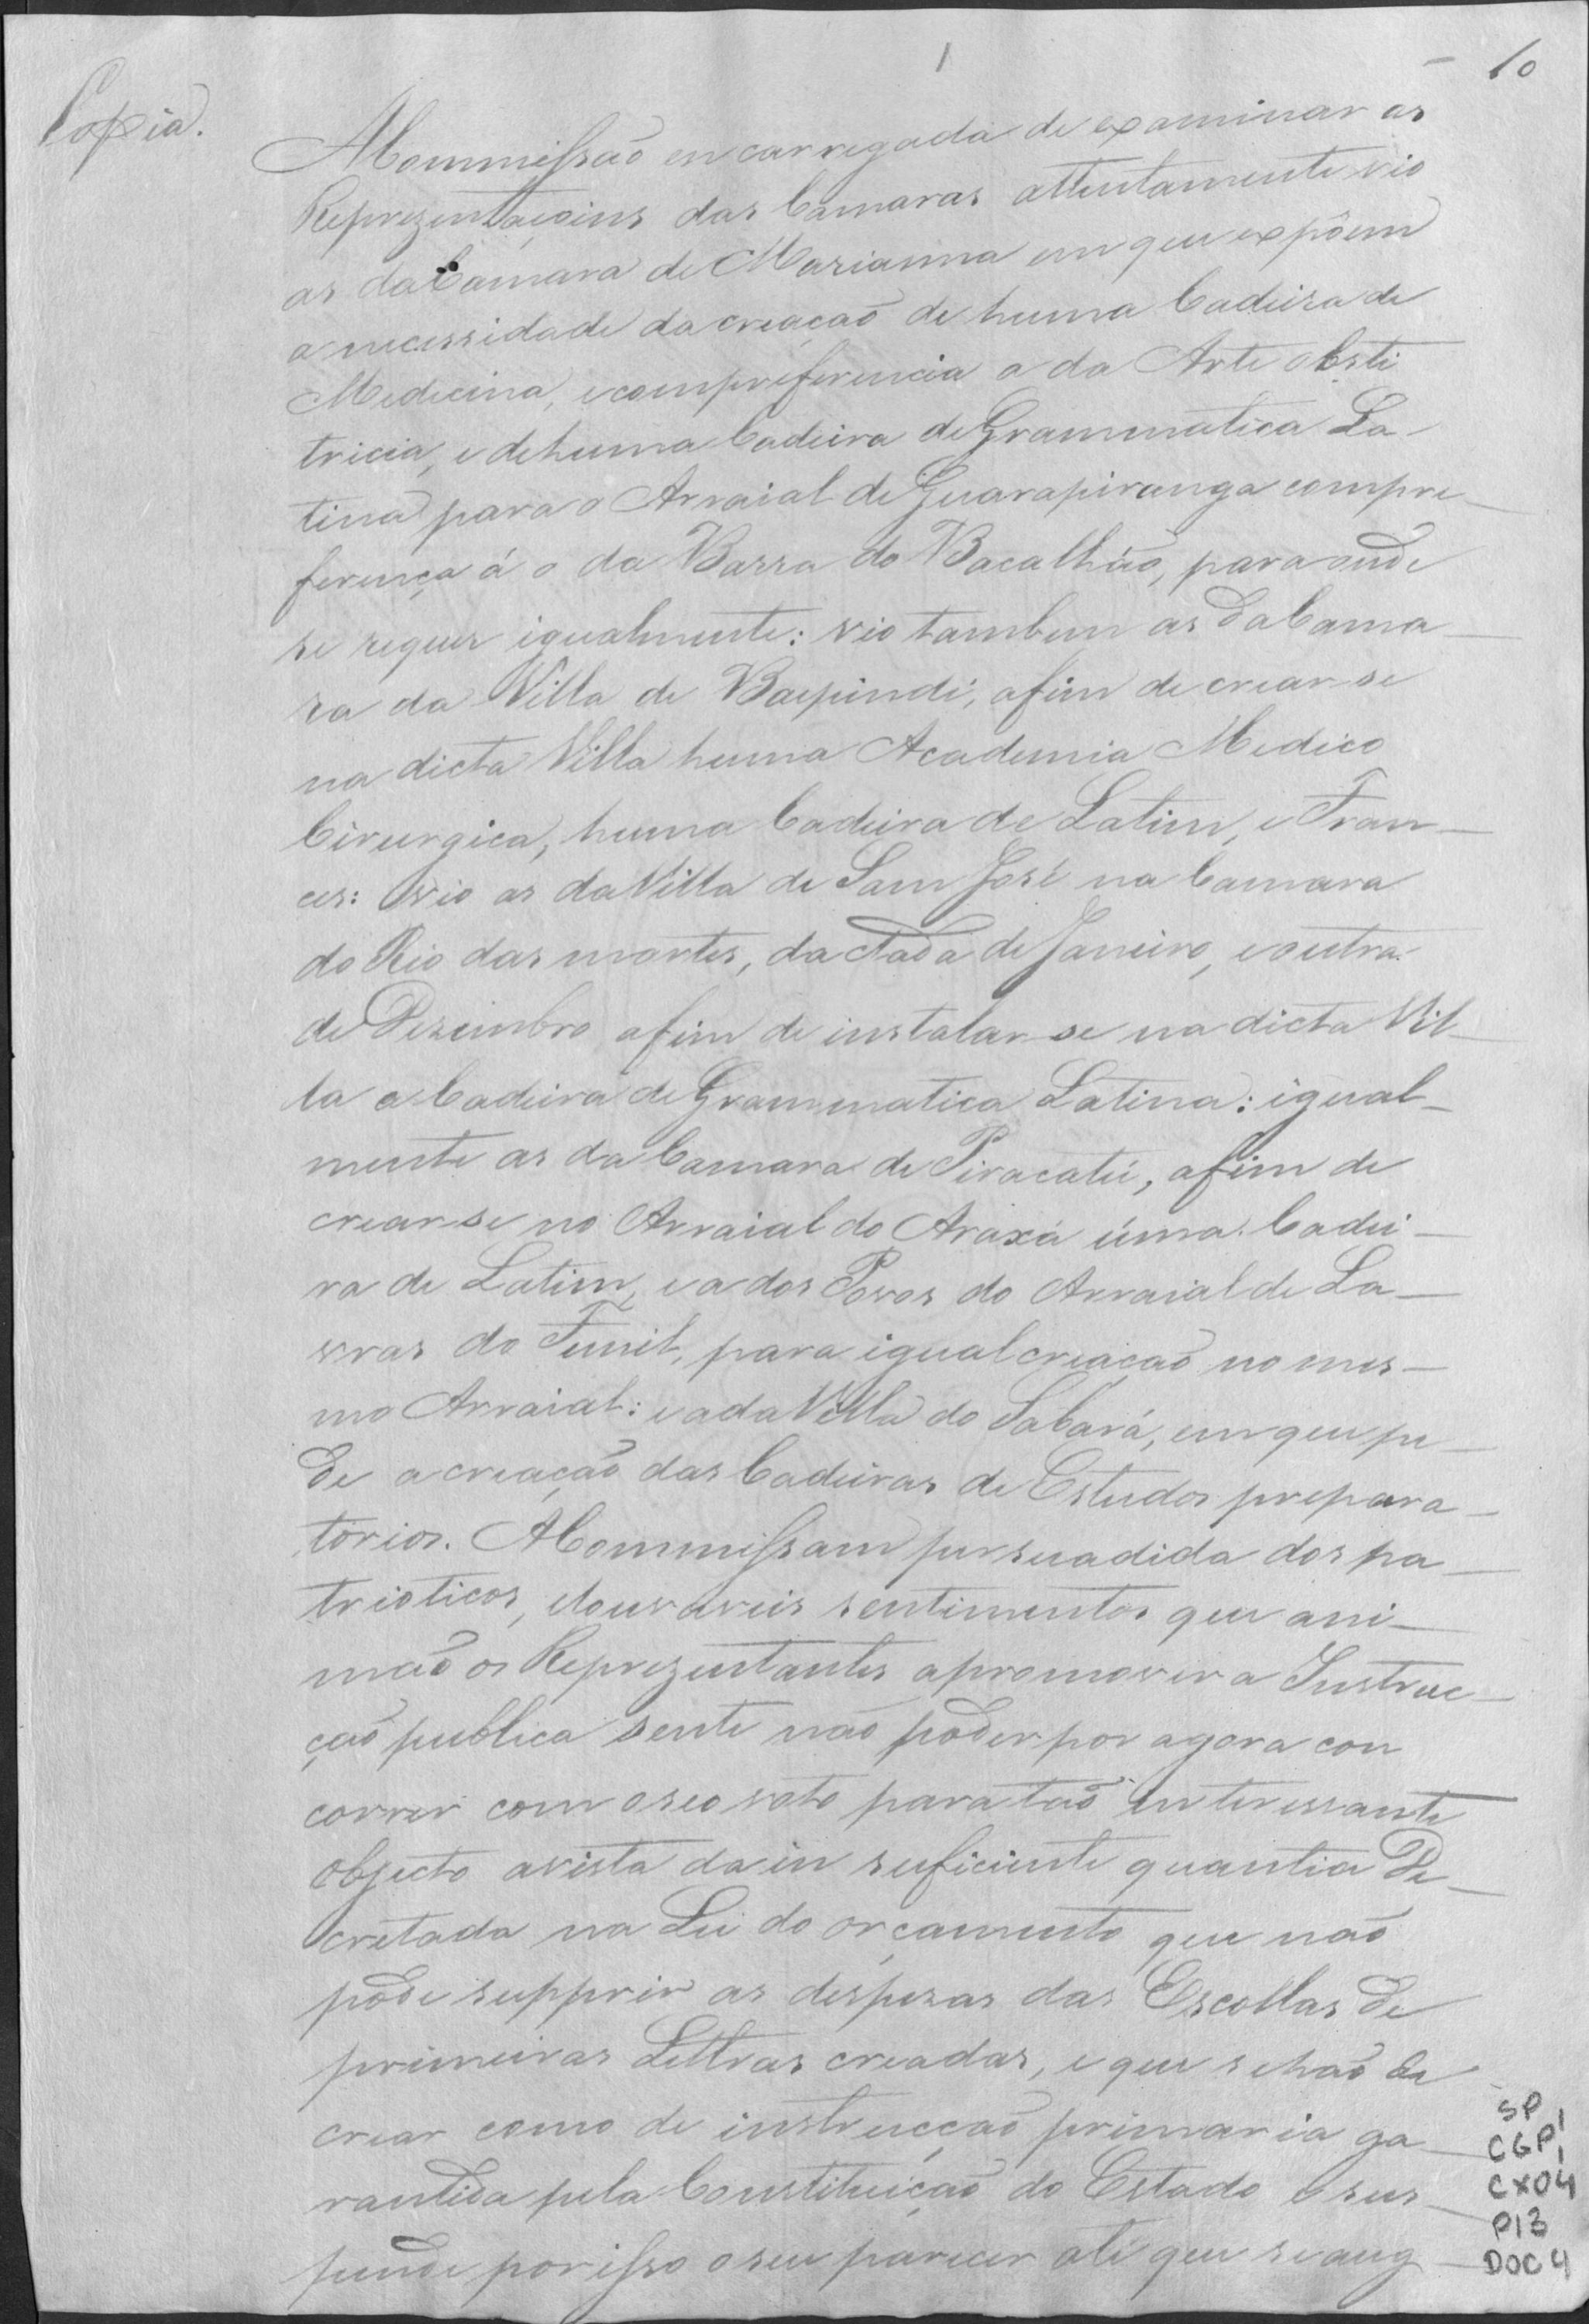 1
10
Copia.
A Commissão encarregada de examinar as
Reprezentaçoins das Camaras attentamente vio
as da Camara de Marianna em que expôem
a necessidade da creaçaõ de huma Cadeira de
Medecina, e com preferencia a da Arte obste
tricia, e de huma Cadeira de Grammatica La-
tina para o Arraial de Guarapiranga com pre-
ferença á o da Barra do Bacalhão, para onde
se requer igualmente: vio tambem as da Cama-
ra da Villa de Baependi, afim de crear-se
na dicta Villa huma Academia Medico
Cirurgica, huma Cadeira de Latim, e Fran-
ces: vio as da Villa de Sam José na Camara
do Rio das mortes, dactada de Janeiro, e outra
de Dezembro afim de instalar-se na dicta Vil-
la a Cadeira de Grammatica Latina: igual-
mente as da Camara de Piracatú, afim de
crear-se no Arraial do Araxá úma Cadei-
ra de Latim, e a dos Povos do Arraial de La-
vras do Funil, para igual creaçaõ no mes-
mo Arraial: e a da Villa do Sabará, em que pe-
de a creação das Cadeiras de Estudos prepara-
torios. A Commissam persuadida dos pa-
trioticos, e louvaveis sentimentos que ani-
maõ os Reprezentantes a promover a Instruc-
çaõ publica sente naõ poder por agora con
correr com o seo voto para taõ interessante
objecto a vista da in suficiente quantia De-
cretada na Lei do orçamento que naõ
pode supprir as despesas das Escollas de
primeiras Lettras creadas, e que se haõ de
crear como de instrucçaõ primaria ga-
rantida pela Constituiçaõ do Estado e sus-
pende por isso o seu parecer até que se aug-
SP
CGP1
CX04
P13
DOC4